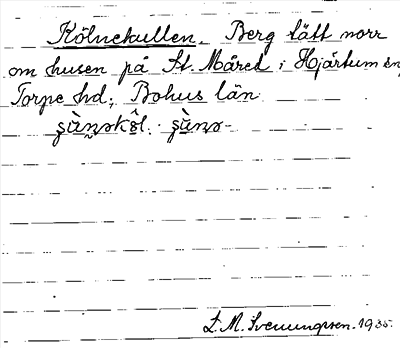 Kölnekullen. Berg tätt norr
om husen på St. Måred i Hjärtum sn,
Torpe hd; Bohus län.
L. M. Svenungsson. 1935.